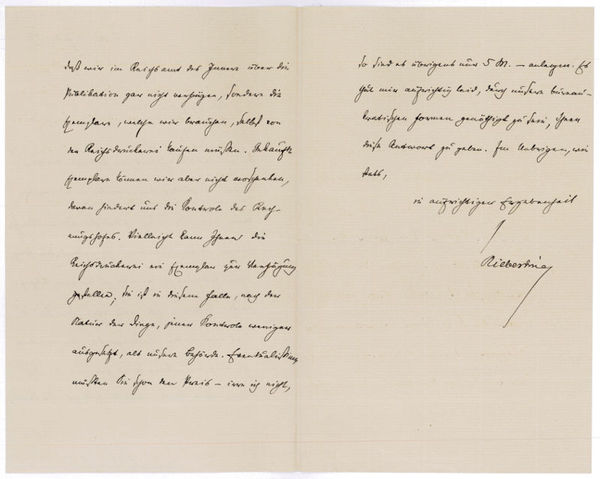 daß wir im Reichsamt des Innern über die
Publikation gar nicht verfügen, sondern die
Exemplare, welche wir brauchen, selbst von
der Reichsdruckerei kaufen müssen. Gekaufte
Exemplare können wir aber nicht verschenken,
daran hindert uns die Kontrole des Rech-
nungshofes. Vielleicht kann Ihnen die
Reichsdruckerei ein Exemplar zur Verfügung
stellen. Sie ist in diesem Falle, nach der
Natur der Dinge, jener Kontrole weniger
ausgesetzt, als unsere Behörde. Eventualiter
müßten Sie schon den Preis – irre ich nicht,
so sind es übrigens nur 5 M. – anlegen. Es
thut mir aufrichtig leid, durch unsere bureau-
kratischen Formen genöthigt zu sein, Ihnen
diese Antwort zu geben. Im Uebrigen, wie
stets,
in aufrichtiger Ergebenheit